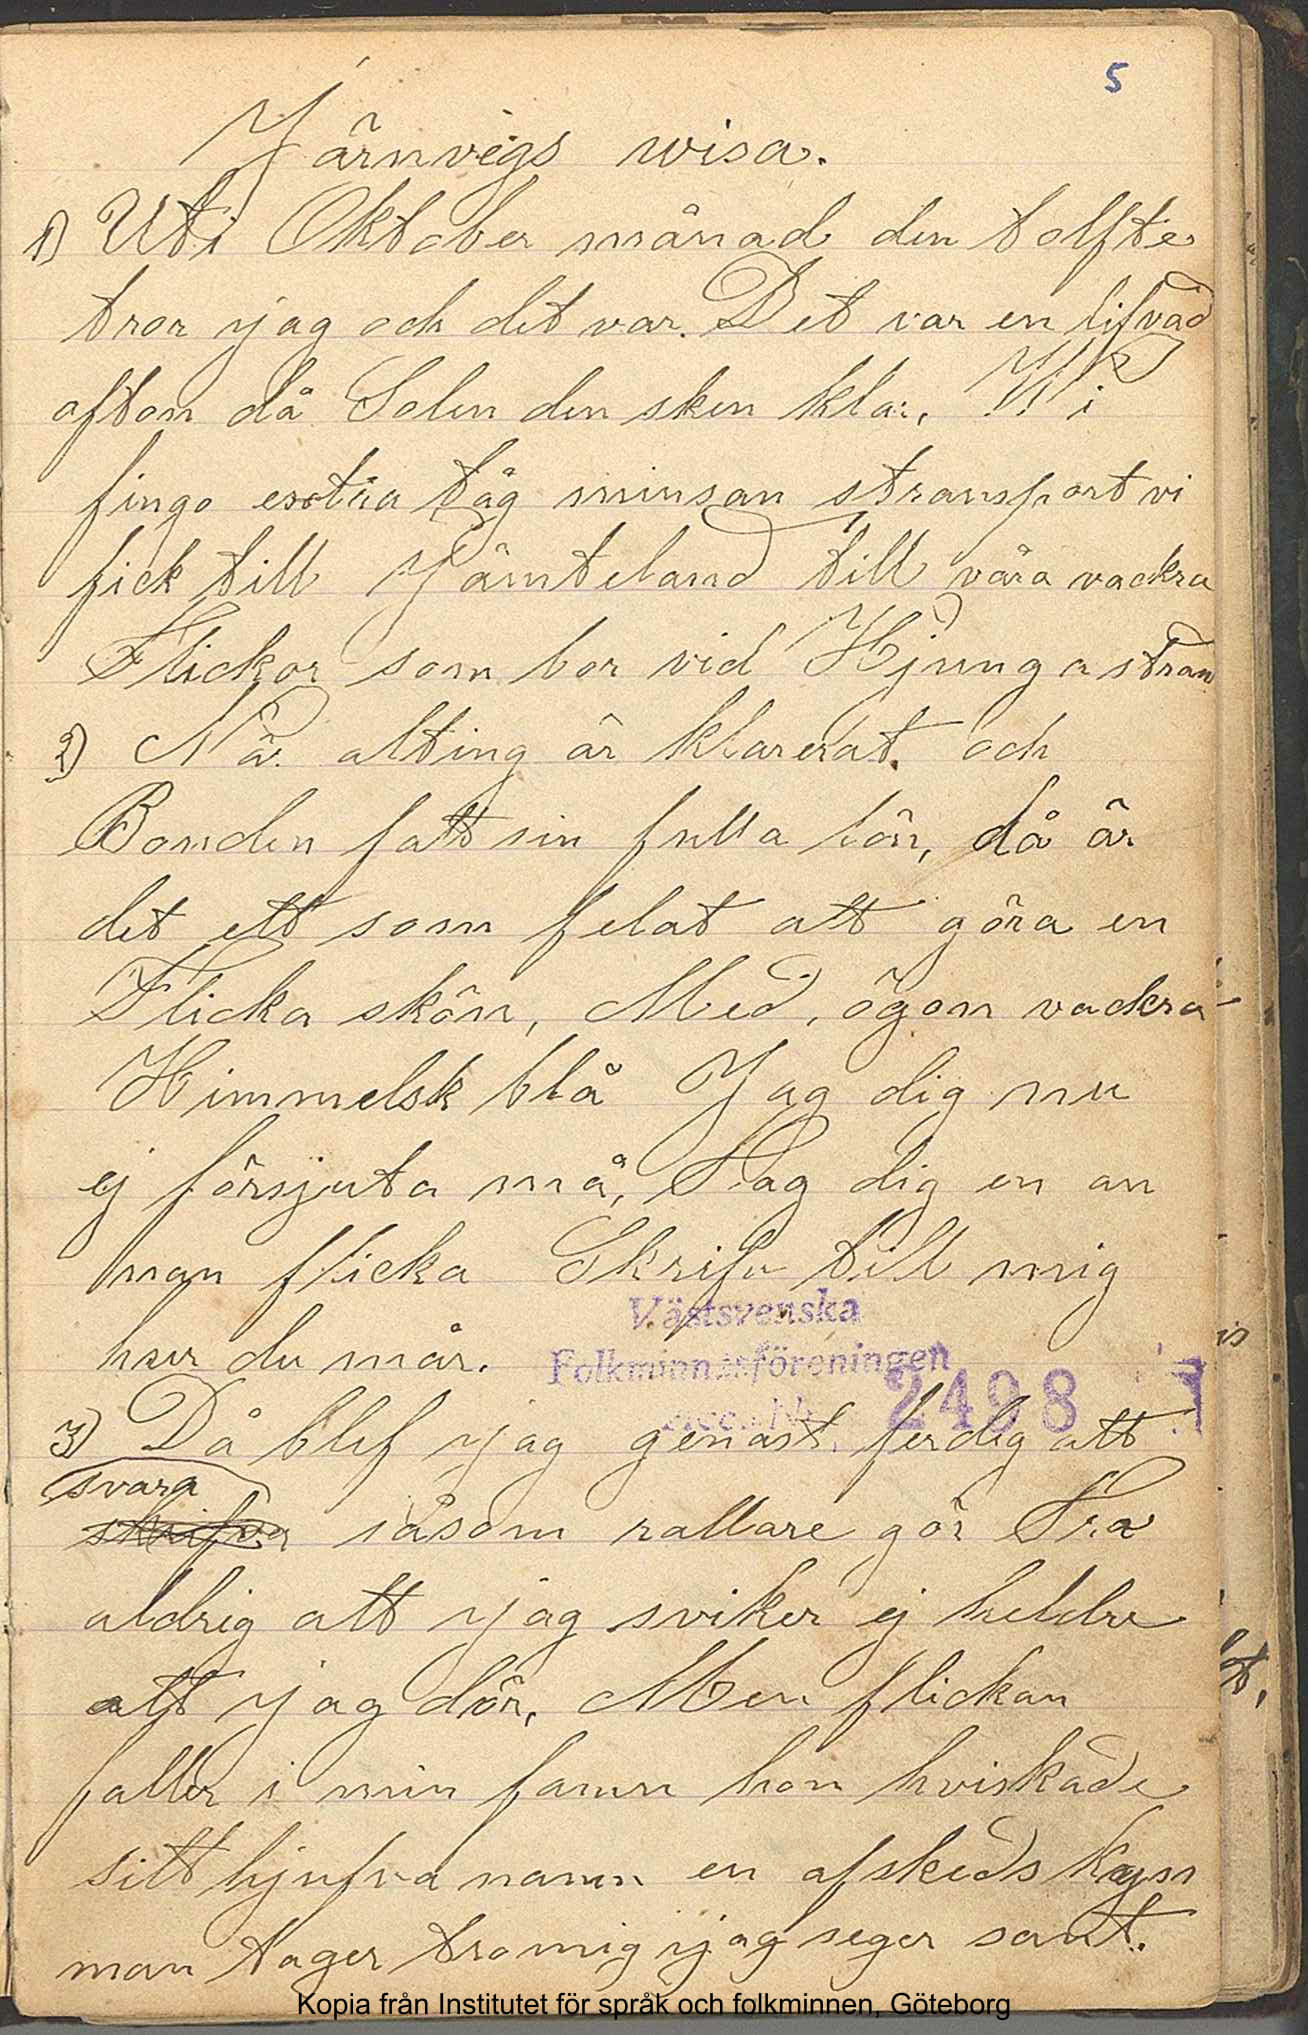 5
Järnvägs wisa.
1) Uti Oktober månad den tolfte
tror jag och det var. Det var en lifvad
afton då Solen den sken klar, Wi
fingo extra tåg minsan stransport vi
fick till Jämteland till våra vackra
Flickor som bor vid Hjunga stran
2) Nä. alting är klarerat. och
Bonden fatt sin fulla lön, då är
det ett som felat att göra en
Flicka skön, Med, ögon vackra
Himmelsk blå Jag dig nu
ej försjuta må, Tag dig en an
nan flicka Skrifv till mig
hur du mår.
Västsvenska
Folkminnesföreningen
Acc. Nr 2498
3) Då blef jag genast. ferdig att
svara
skrifva såsom rallare gör Tra
aldrig att jag sviker ej heldre
att jag dör, Men flickan
faller i min famn hon hviskade
sitt hjufva namn en afskeds kyss
man tager tro mig jag seger sant.
Kopia från Institutet för språk och folkminnen, Göteborg